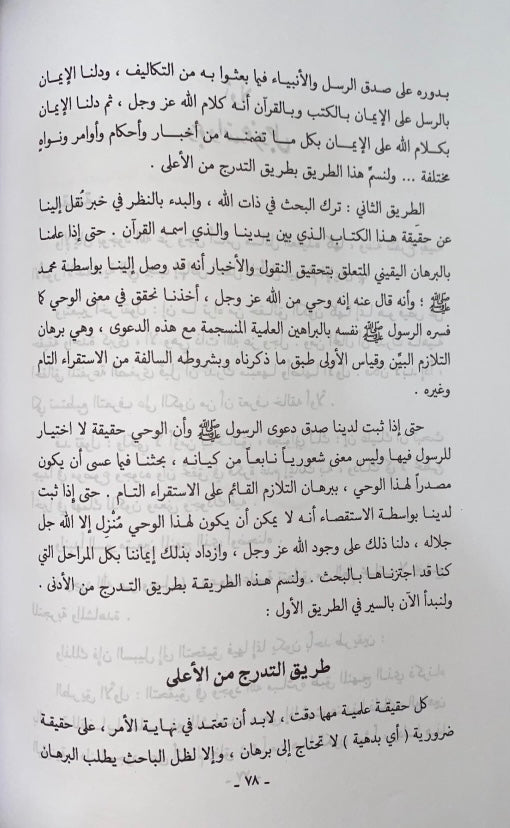 بدوره على صدق الرسل والأنبياء فيما بعثوا به من التكاليف ، ودلنا الإيمان
بالرسل على الإيمان بالكتب وبالقرآن أنه كلام الله عز وجل ، ثم دلنا الإيمان
بكلام الله على الإيمان بكل ما تضمنه من أخبار وأحكام وأوامر ونواهٍ
مختلفة ... ولنسمِّ هذا الطريق بطريق التدرج من الأعلى .
الطريق الثاني : ترك البحث في ذات الله ، والبدء بالنظر في خبر نُقل إلينا
عن حقيقة هذا الكتاب الذي بين يدينا والذي اسمه القرآن . حتى إذا علمنا
بالبرهان اليقيني المتعلق بتحقيق النقول والأخبار أنه قد وصل إلينا بواسطة محمد
ﷺ ؛ وأنه قال عنه إنه وحي من الله عز وجل ، أخذنا نحقق في معنى الوحي كما
فسره الرسول ﷺ نفسه بالبراهين العلمية المنسجمة مع هذه الدعوى ، وهي برهان
التلازم البيّن وقياس الأولى طبق ما ذكرناه وبشروطه السالفة من الاستقراء التام
وغيره .
حتى إذا ثبت لدينا صدق دعوى الرسول ﷺ وأن الوحي حقيقة لا اختيار
للرسول فيها وليس معنى شعورياً نابعاً من كيانه ، بحثنا فيما عسى أن يكون
مصدراً لهذا الوحي ، ببرهان التلازم القائم على الاستقراء التام . حتى إذا ثبت
لدينا بواسطة الاستقصاء أنه لا يمكن أن يكون لهذا الوحي مُنْزِل إلا الله جل
جلاله ، دلنا ذلك على وجود الله عز وجل ، وازداد بذلك إيماننا بكل المراحل التي
كنا قد اجتزناها بالبحث . ولنسم هذه الطريقة بطريق التدرج من الأدنى .
ولنبدأ الآن بالسير في الطريق الأول :
طريق التدرج من الأعلى
كل حقيقة علمية مهما دقت ، لابد أن تعتمد في نهاية الأمر ، على حقيقة
ضرورية ( أي بدهية ) لا تحتاج إلى برهان ، وإلا لظل الباحث يطلب البرهان
- ٧٨ -